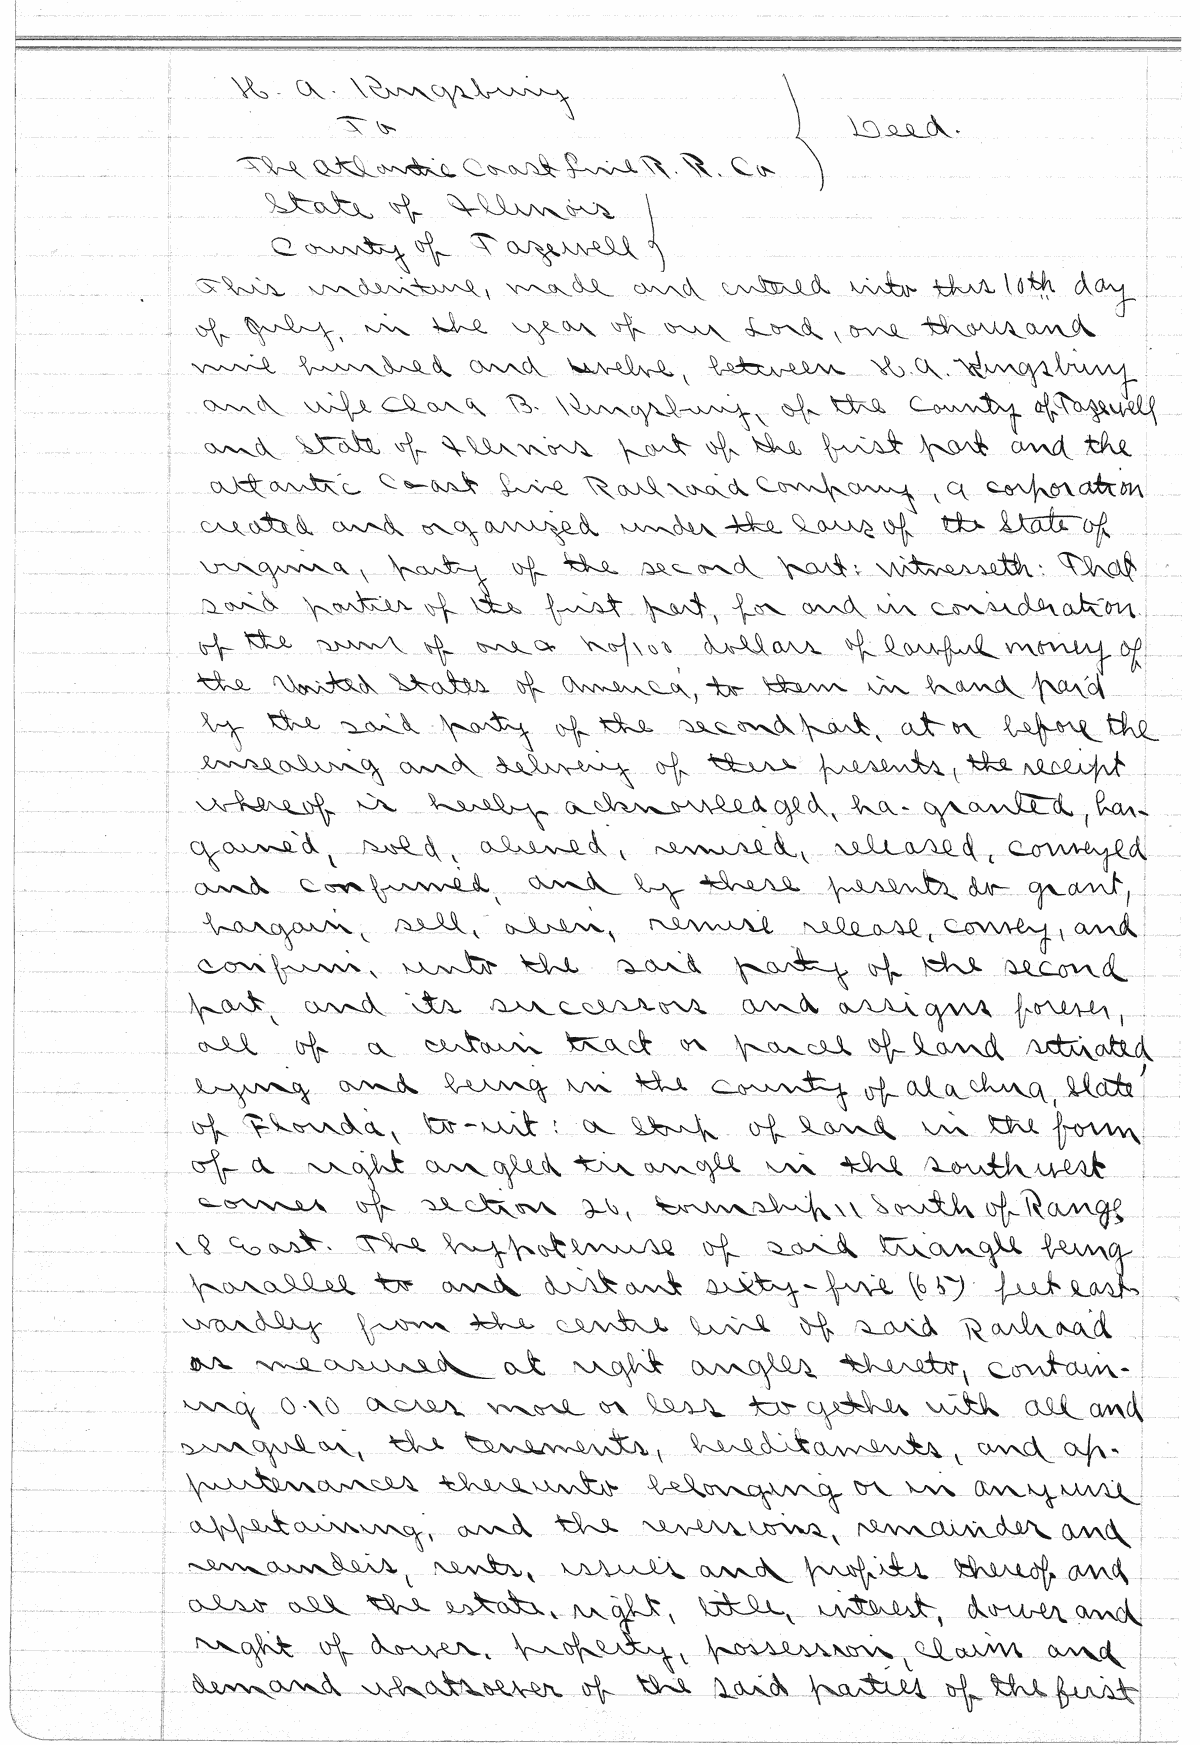 H. A. Kingsbury
To
Deed.
The Atlantic Coast Line R. R. Co
State of Illinois
County of Tazewell
This indenture, made and entered into this 10th day
of July, in the year of our Lord, one thousand
nine hundred and twelve, between H. A. Kingsbury
and wife Clara B. Kingsbury, of the County of Tazewell
and State of Illinois part of the first part and the
Atlantic Coast Line Railroad Company, a corporation
created and organized under the laws of the State of
Virginia, party of the second part: Witnesseth: That
said parties of the first part, for and in consideration
of the sum of one & no/100 dollars of lawful money of
the United States of America, to them in hand paid
by the said party of the second part, at or before the
ensealing and delivery of these presents, the receipt
whereof is hereby acknowledged, ha- granted, bar-
gained, sold, aliened, remised, released, conveyed
and confirmed, and by these pesents do grant,
bargain, sell, alien, remise release, convey, and
confirm, unto the said party of the second
part, and its successors and assigns forever,
all of a certain tract or parcel of land situated,
lying and being in the county of Alachua, State
of Florida, to-wit: a strip of land in the form
of a right angled triangle in the southwest
corner of section 26, township 11 South of Range
18 East. The hyppotenuse of said triangle being
parallel to and distant sixty-five (65) feet east
wardly from the centre line of said Railroad
as measured at right angles thereto, contain-
ing 0.10 acres more or less together with all and
singular, the tenements, hereditaments, and ap-
purtenances thereunto belonging or in anywise
appertaining, and the reversions, remainder and
remainders, rents, issues and profits thereof and
also all the estate, right, title, interest, dower and
right of dower, property, possession, claim and
demand whatsoever of the said parties of the first